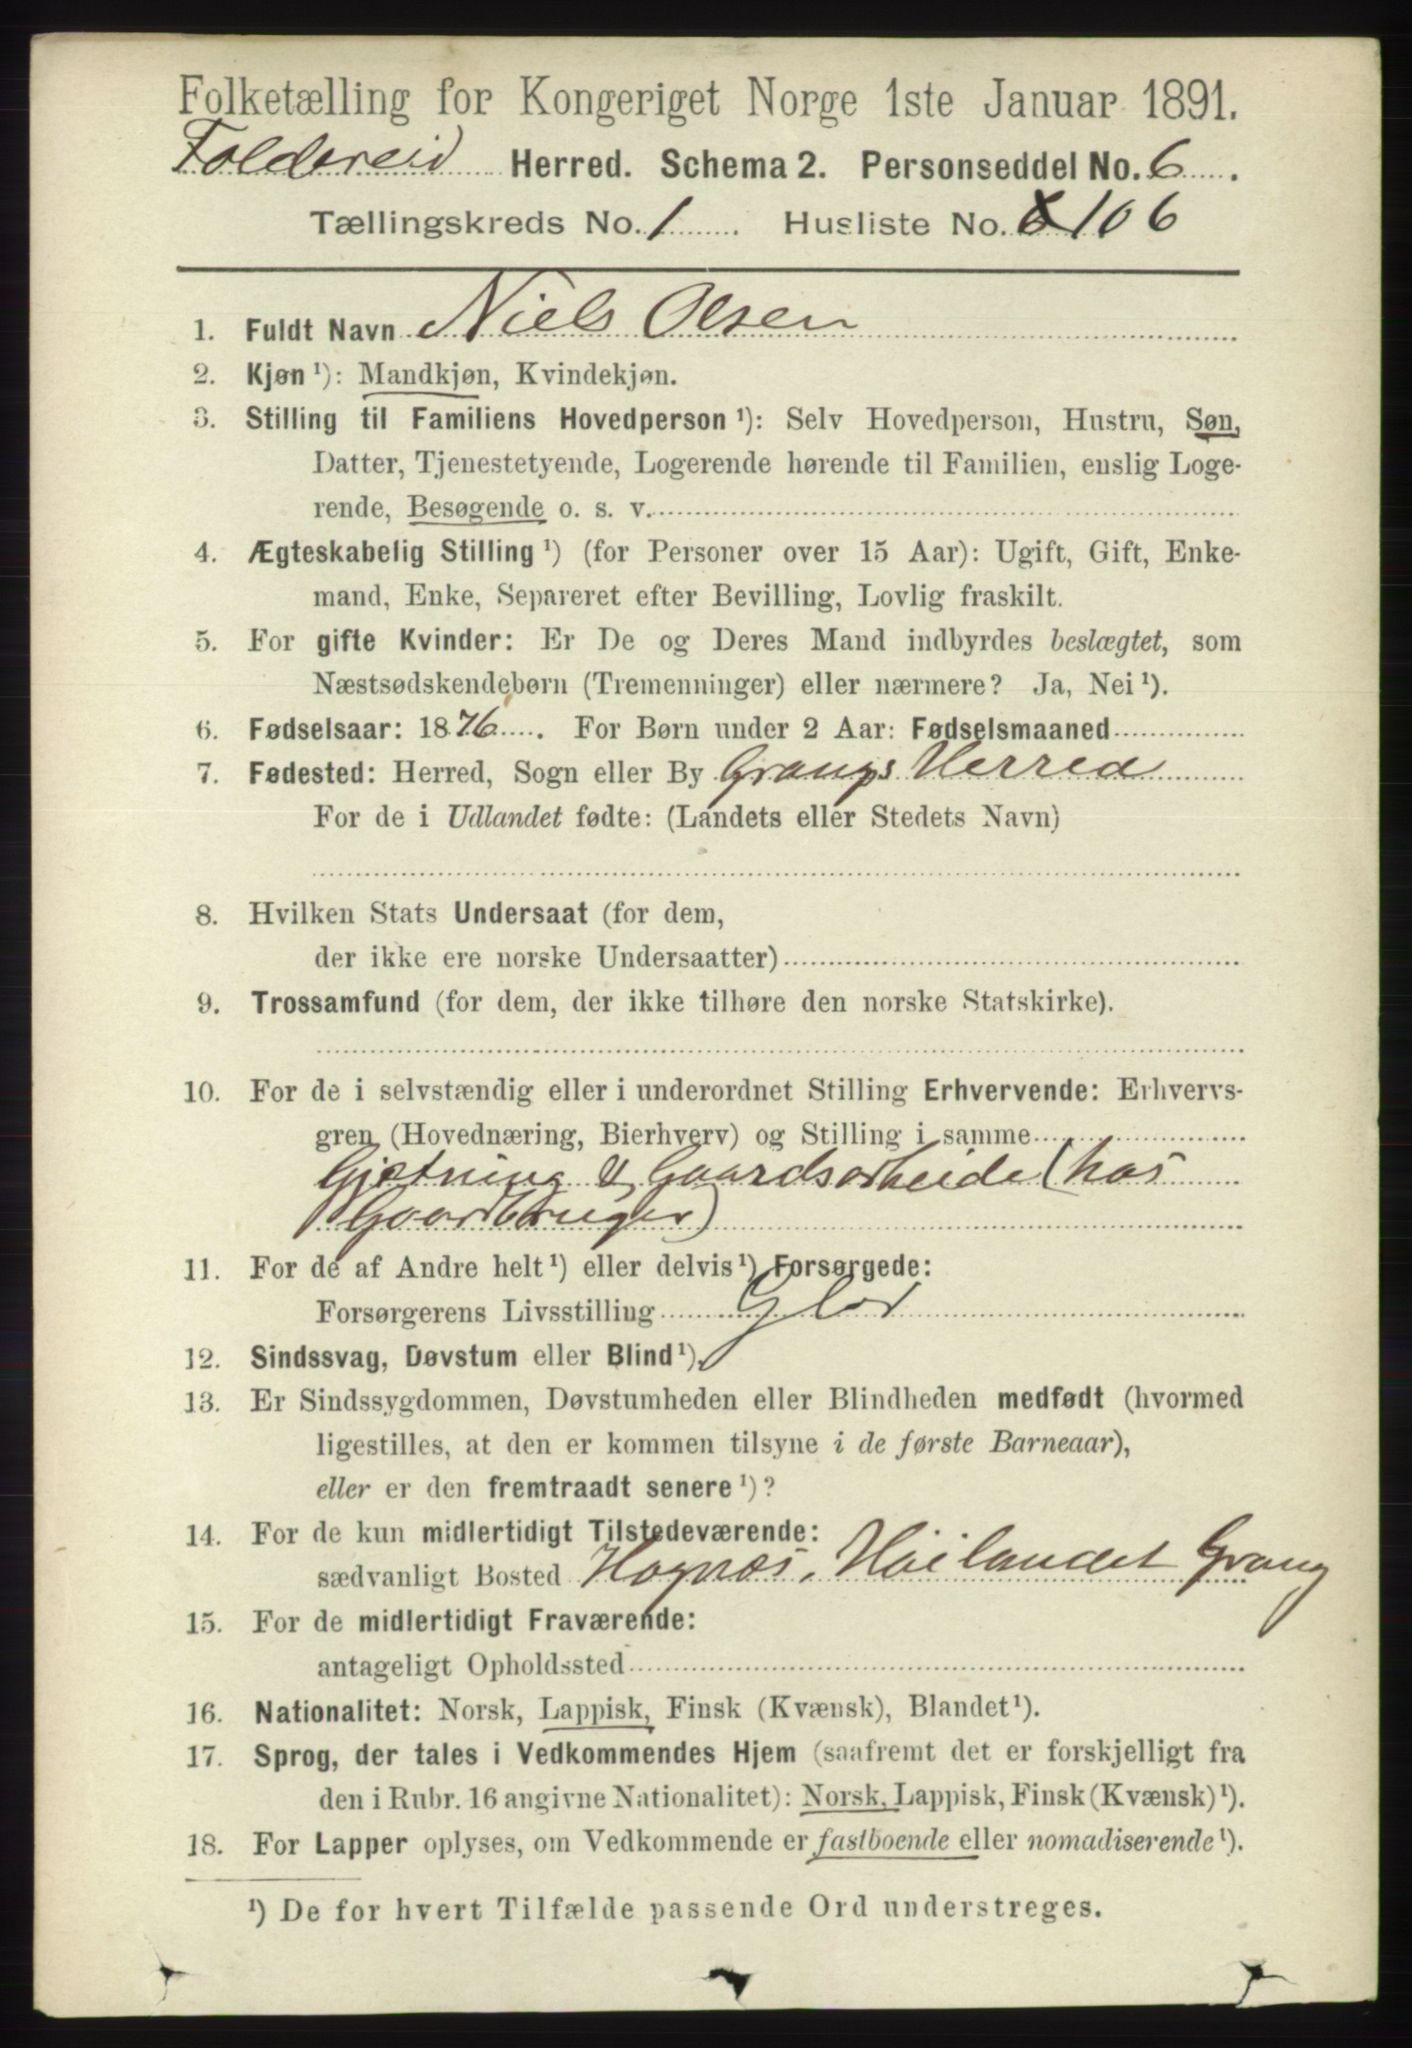 Folketælling for Kongeriget Norge 1ste Januar 1891.
Foldereid Herred. Schema 2. Personseddel No. 6
Tællingskreds No. 1 Husliste No. 6 106
1. Fuldt Navn Niels Olsen
2. Kjøn ¹): Mandkjøn, Kvindekjøn.
3. Stilling til Familiens Hovedperson ¹): Selv Hovedperson, Hustru, Søn,
Datter, Tjenestetyende, Logerende hørende til Familien, enslig Loge-
rende, Besøgende o. s. v.
4. Ægteskabelig Stilling ¹) (for Personer over 15 Aar): Ugift, Gift, Enke-
mand, Enke, Separeret efter Bevilling, Lovlig fraskilt.
5. For gifte Kvinder: Er De og Deres Mand indbyrdes beslægtet, som
Næstsødskendebørn (Tremenninger) eller nærmere? Ja, Nei ¹).
6. Fødselsaar: 1876. For Børn under 2 Aar: Fødselsmaaned
7. Fødested: Herred, Sogn eller By Grongs Herred
For de i Udlandet fødte: (Landets eller Stedets Navn)
8. Hvilken Stats Undersaat (for dem,
der ikke ere norske Undersaatter)
9. Trossamfund (for dem, der ikke tilhøre den norske Statskirke).
10. For de i selvstændig eller i underordnet Stilling Erhvervende: Erhvervs-
gren (Hovednæring, Bierhverv) og Stilling i samme
Gjætning & Gaardsarbeide (hos
Gaardbruger)
11. For de af Andre helt ¹) eller delvis ¹) Forsørgede:
Forsørgerens Livsstilling
12. Sindssvag, Døvstum eller Blind ¹).
13. Er Sindssygdommen, Døvstumheden eller Blindheden medfødt (hvormed
ligestilles, at den er kommen tilsyne i de første Barneaar),
eller er den fremtraadt senere ¹)?
14. For de kun midlertidigt Tilstedeværende:
sædvanligt Bosted Hognæs, Høilandet Grong
15. For de midlertidigt Fraværende:
antageligt Opholdssted
16. Nationalitet: Norsk, Lappisk, Finsk (Kvænsk), Blandet ¹).
17. Sprog, der tales i Vedkommendes Hjem (saafremt det er forskjelligt fra
den i Rubr. 16 angivne Nationalitet): Norsk, Lappisk, Finsk (Kvænsk) ¹).
18. For Lapper oplyses, om Vedkommende er fastboende eller nomadiserende ¹).
¹) De for hvert Tilfælde passende Ord understreges.